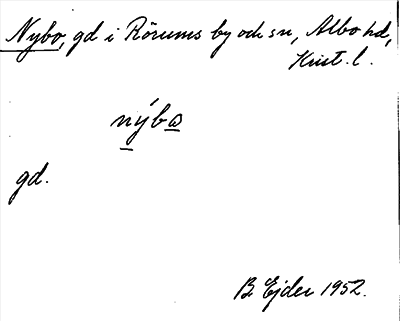 Nybo, gd i Rörums by och sn, Albo hd,
Krist. l.
nýbω
gd.
B. Ejder 1952.